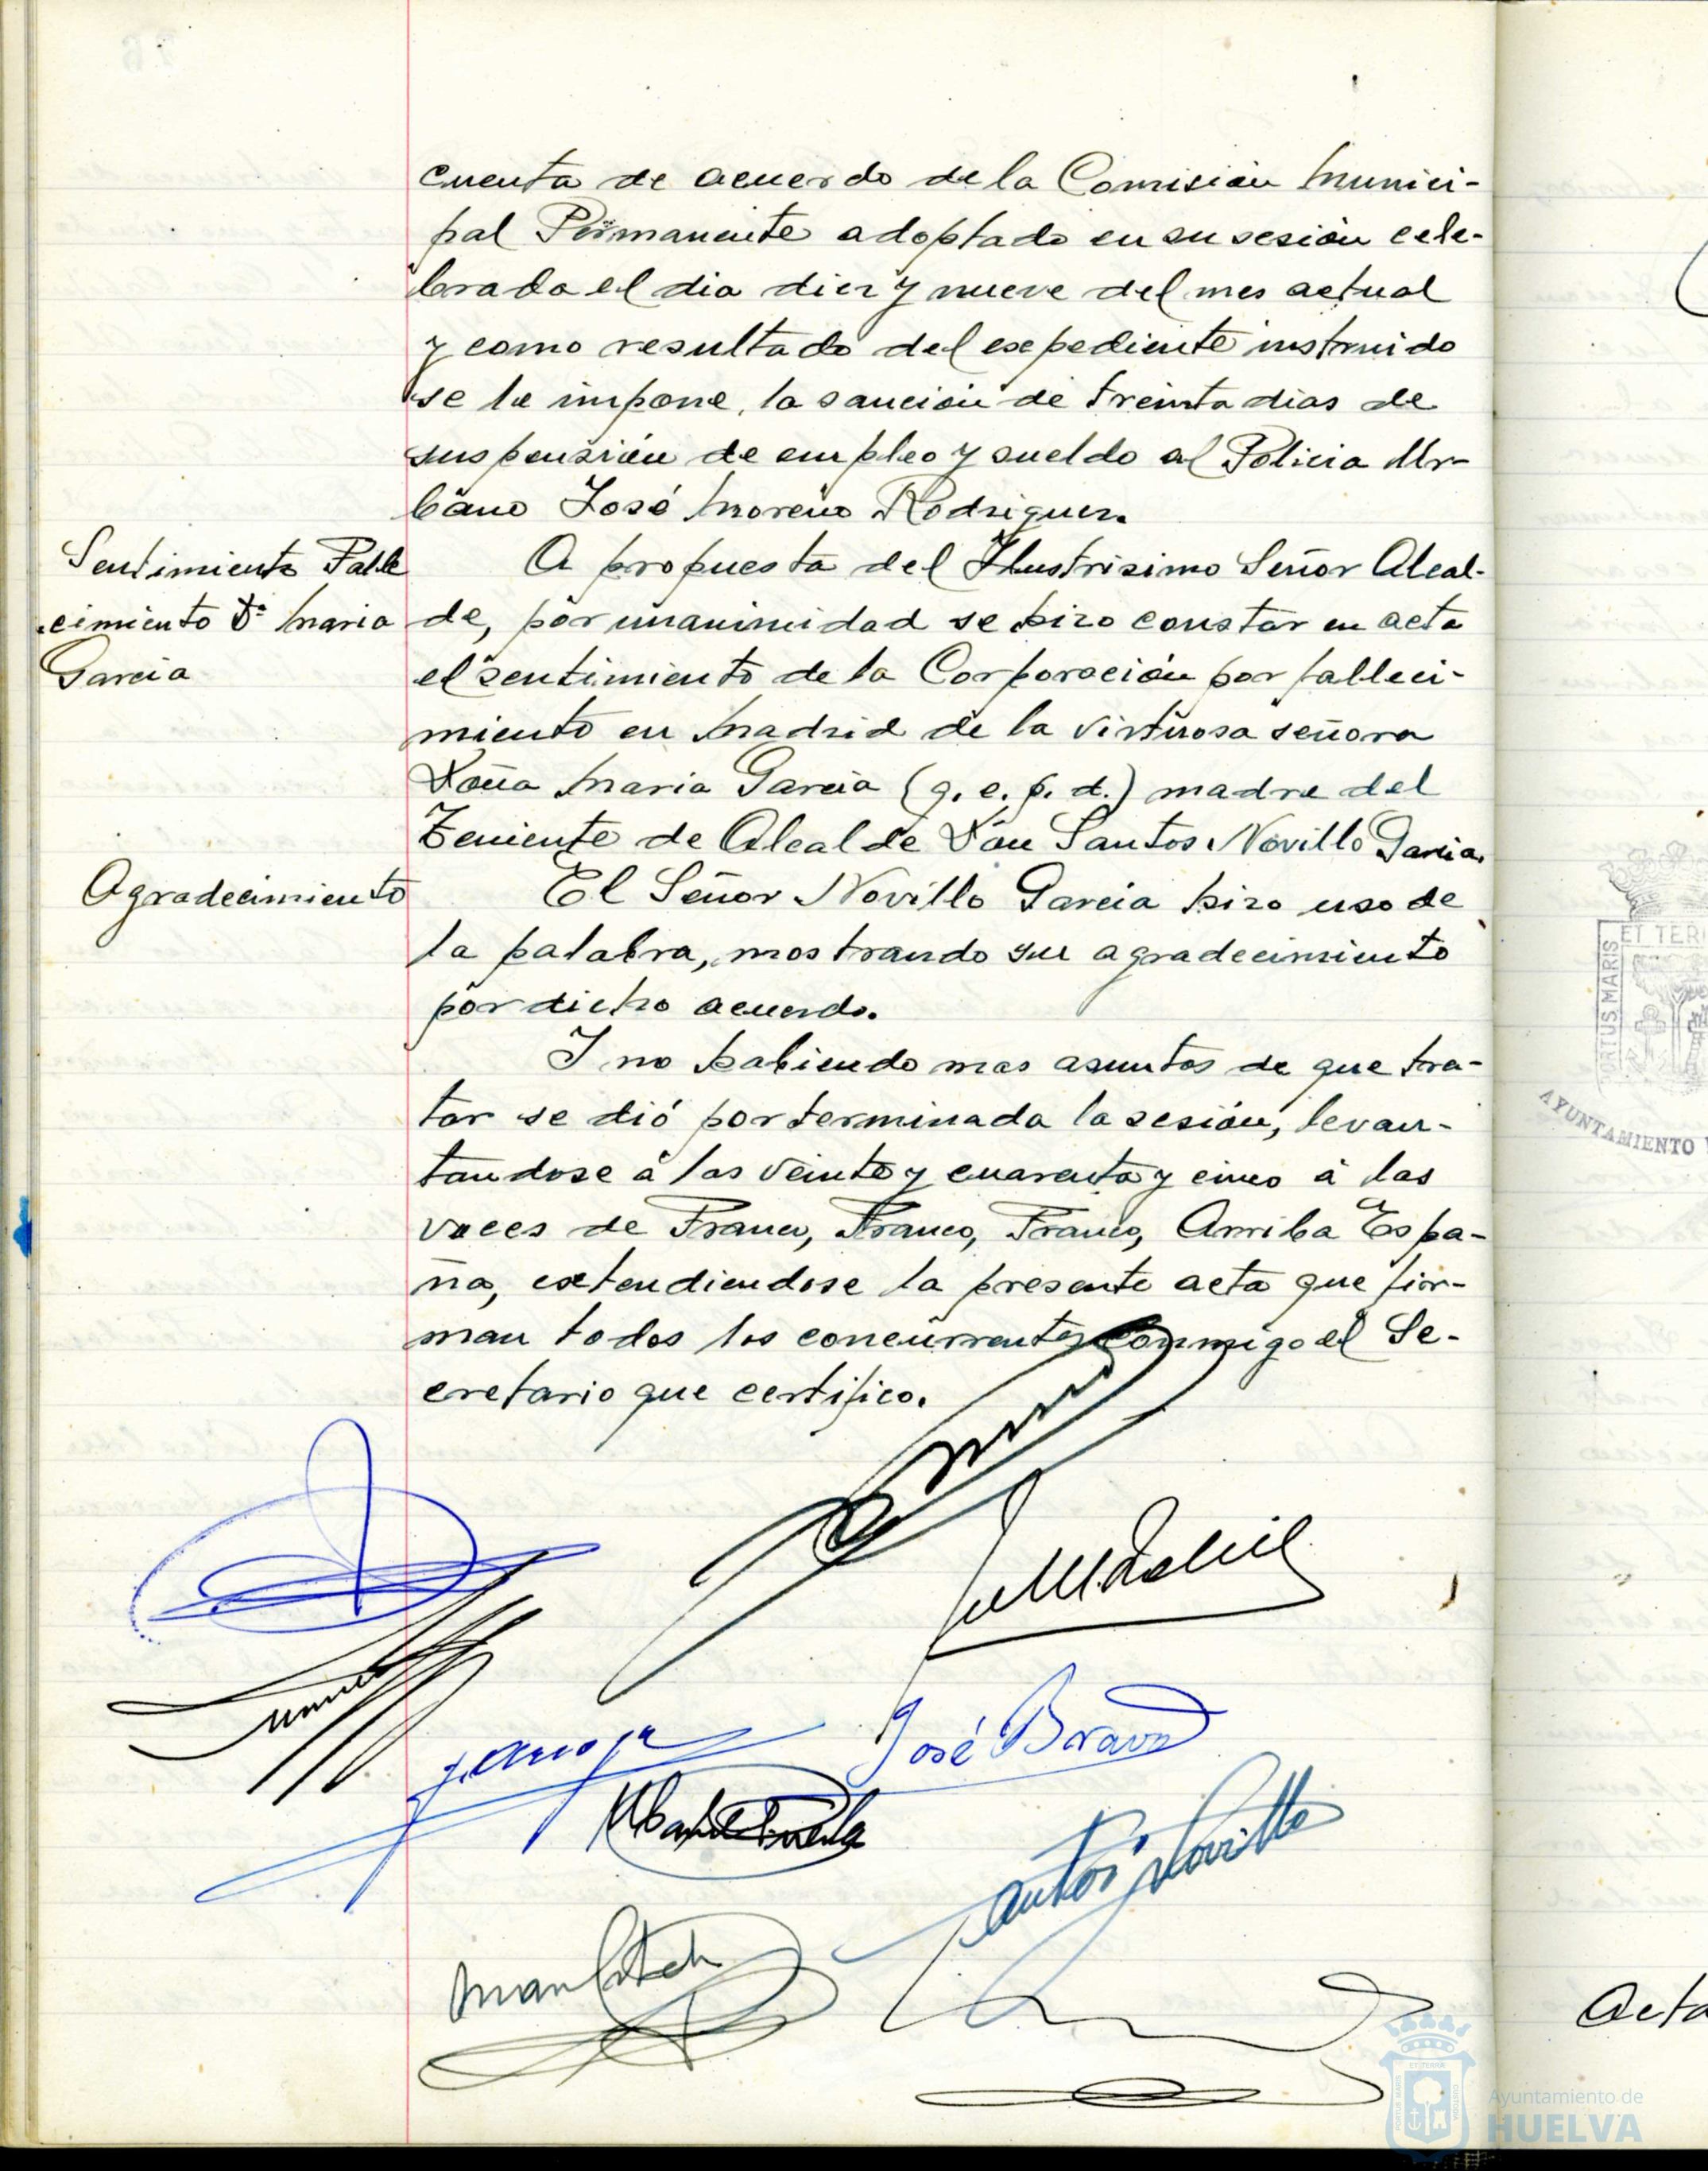 cuenta de acuerdo de la Comisión Munici-
pal Permanente adoptado en su sesión cele-
brada el dia diez y nueve del mes actual
y como resultado del expediente instruido
se le impone, la sanción de treinta dias de
suspensión de empleo y sueldo al Policia Ur-
bano José Moreno Rodriguez.
Sentimiento Falle
cimiento Dª Maria
Garcia
A propuesta del Ilustrisimo Señor Alcal-
de, por unanimidad se hizo constar en acta
el sentimiento de la Corporación por falleci-
miento en Madrid de la virtuosa señora
Doña Maria Garcia (q. e. p. d.) madre del
Teniente de Alcalde Don Santos Novillo Garcia.
Agradecimiento
El Señor Novillo Garcia hizo uso de
la palabra, mostrando su agradecimiento
por dicho acuerdo.
Y no habiendo mas asuntos de que tra-
tar se dió por terminada la sesión, levan-
tandose á las veinte y cuarenta y cinco á las
voces de Franco, Franco, Franco, Arriba Espa-
ña, extendiendose la presente acta que fir-
man todos los concurrentes conmigo el Se-
cretario que certifico.
José Bravo
Santos Novillo
ET TERR
PORTUS MARIS
AYUNTAMIENTO
Acta
Ayuntamiento de
HUELVA